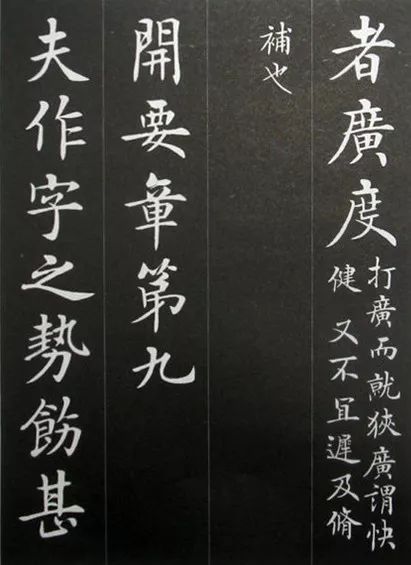 者廣度
打廣而就狹廣謂快
健 又不宜遲及脩
補也
開要章第九
夫作字之勢飭甚